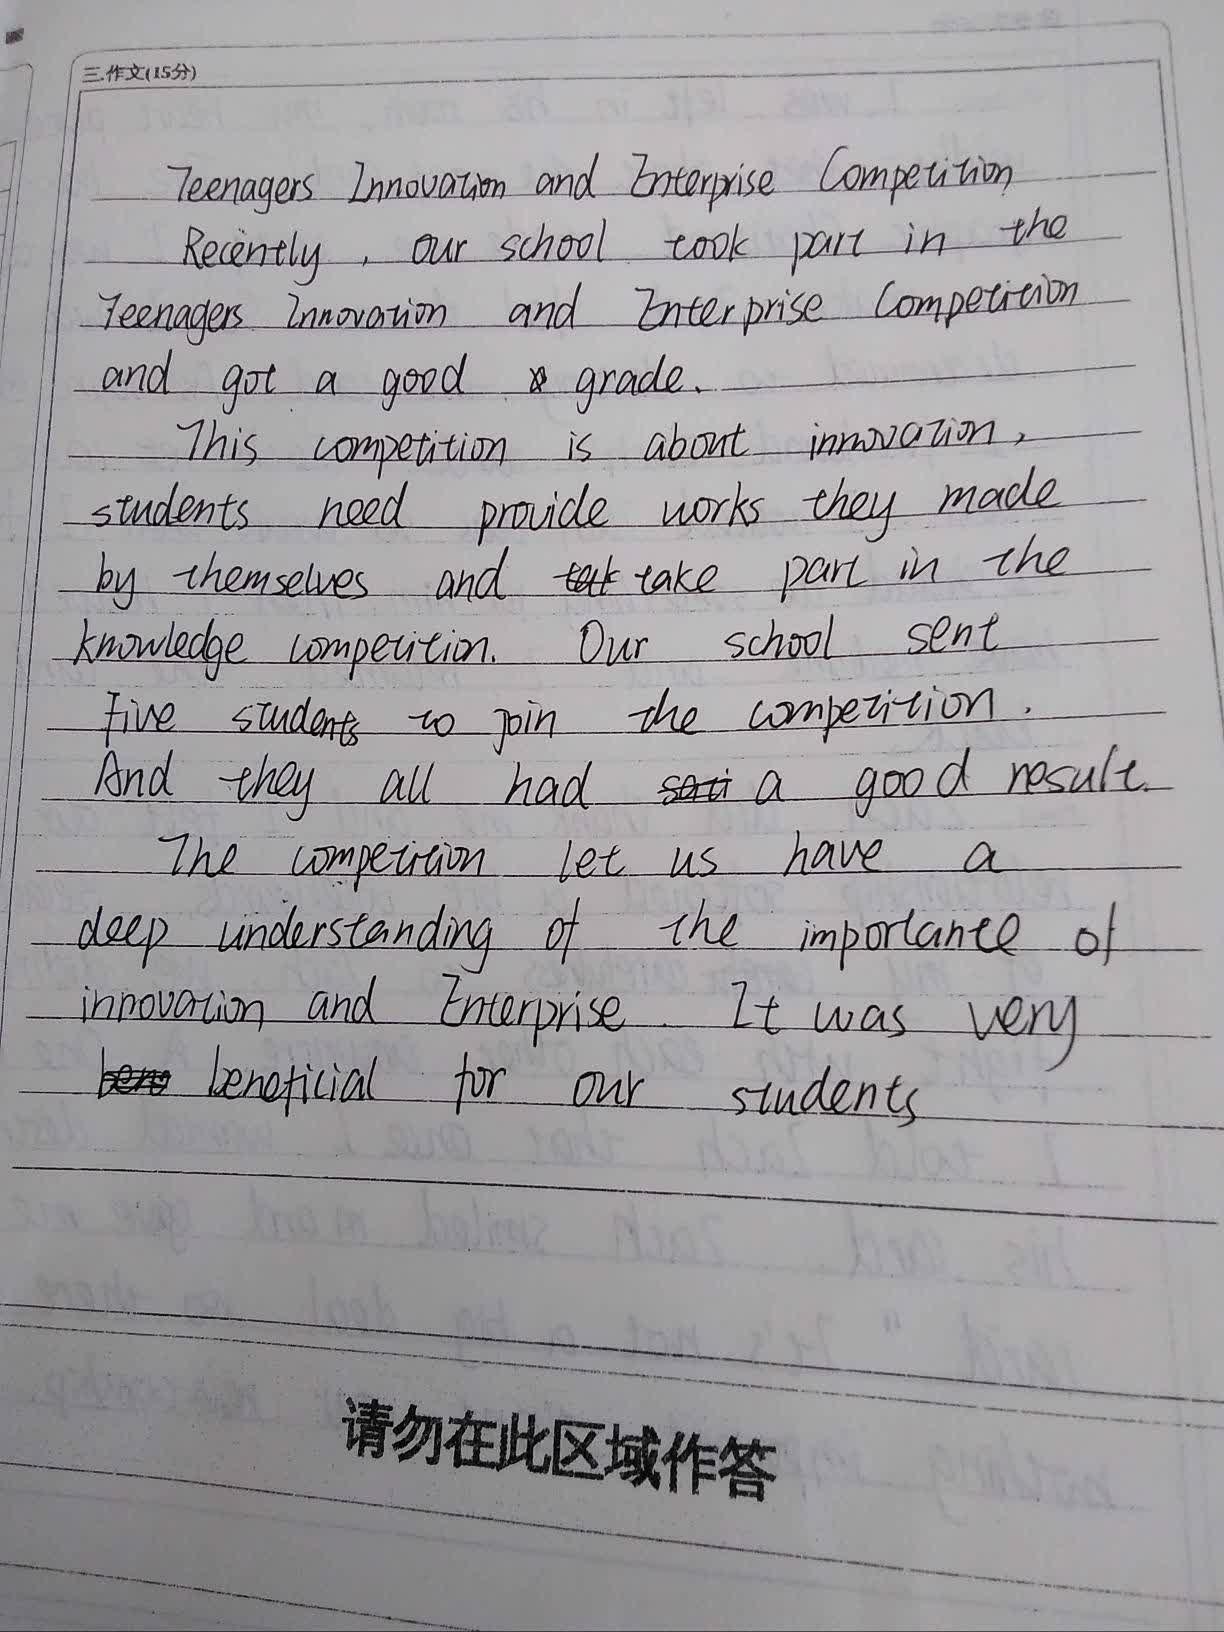 三.作文(15分)
Teenagers Innovation and Enterprise Competition
Recently, our school took part in the
Teenagers Innovation and Enterprise Competition
and got a good grade.
This competition is about innovation,
students need provide works they made
by themselves and take part in the
knowledge competition. Our school sent
five students to join the competition.
And they all had a good result.
The competition let us have a
deep understanding of the importance of
innovation and Enterprise. It was very
beneficial for our students
请勿在此区域作答